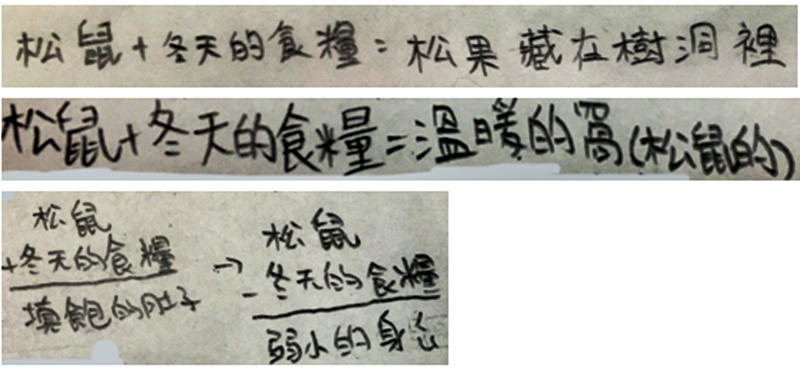 松鼠+冬天的食糧=松果藏在樹洞裡
松鼠+冬天的食糧=溫暖的窩(松鼠的)
松鼠
+冬天的食糧
填飽的肚子
→
松鼠
-冬天的食糧
弱小的身心